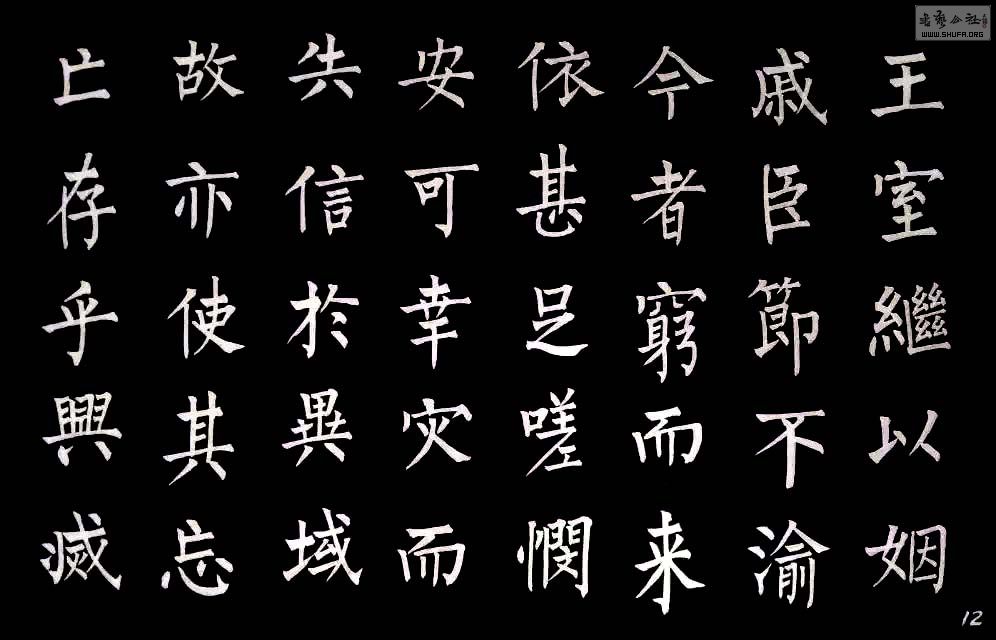 王室繼以姻
戚臣節不渝
今者窮而来
依甚足嗟憫
安可幸灾而
失信於異域
故亦使其忘
亡存乎興滅
12
書藝公社
WWW.SHUFA.ORG